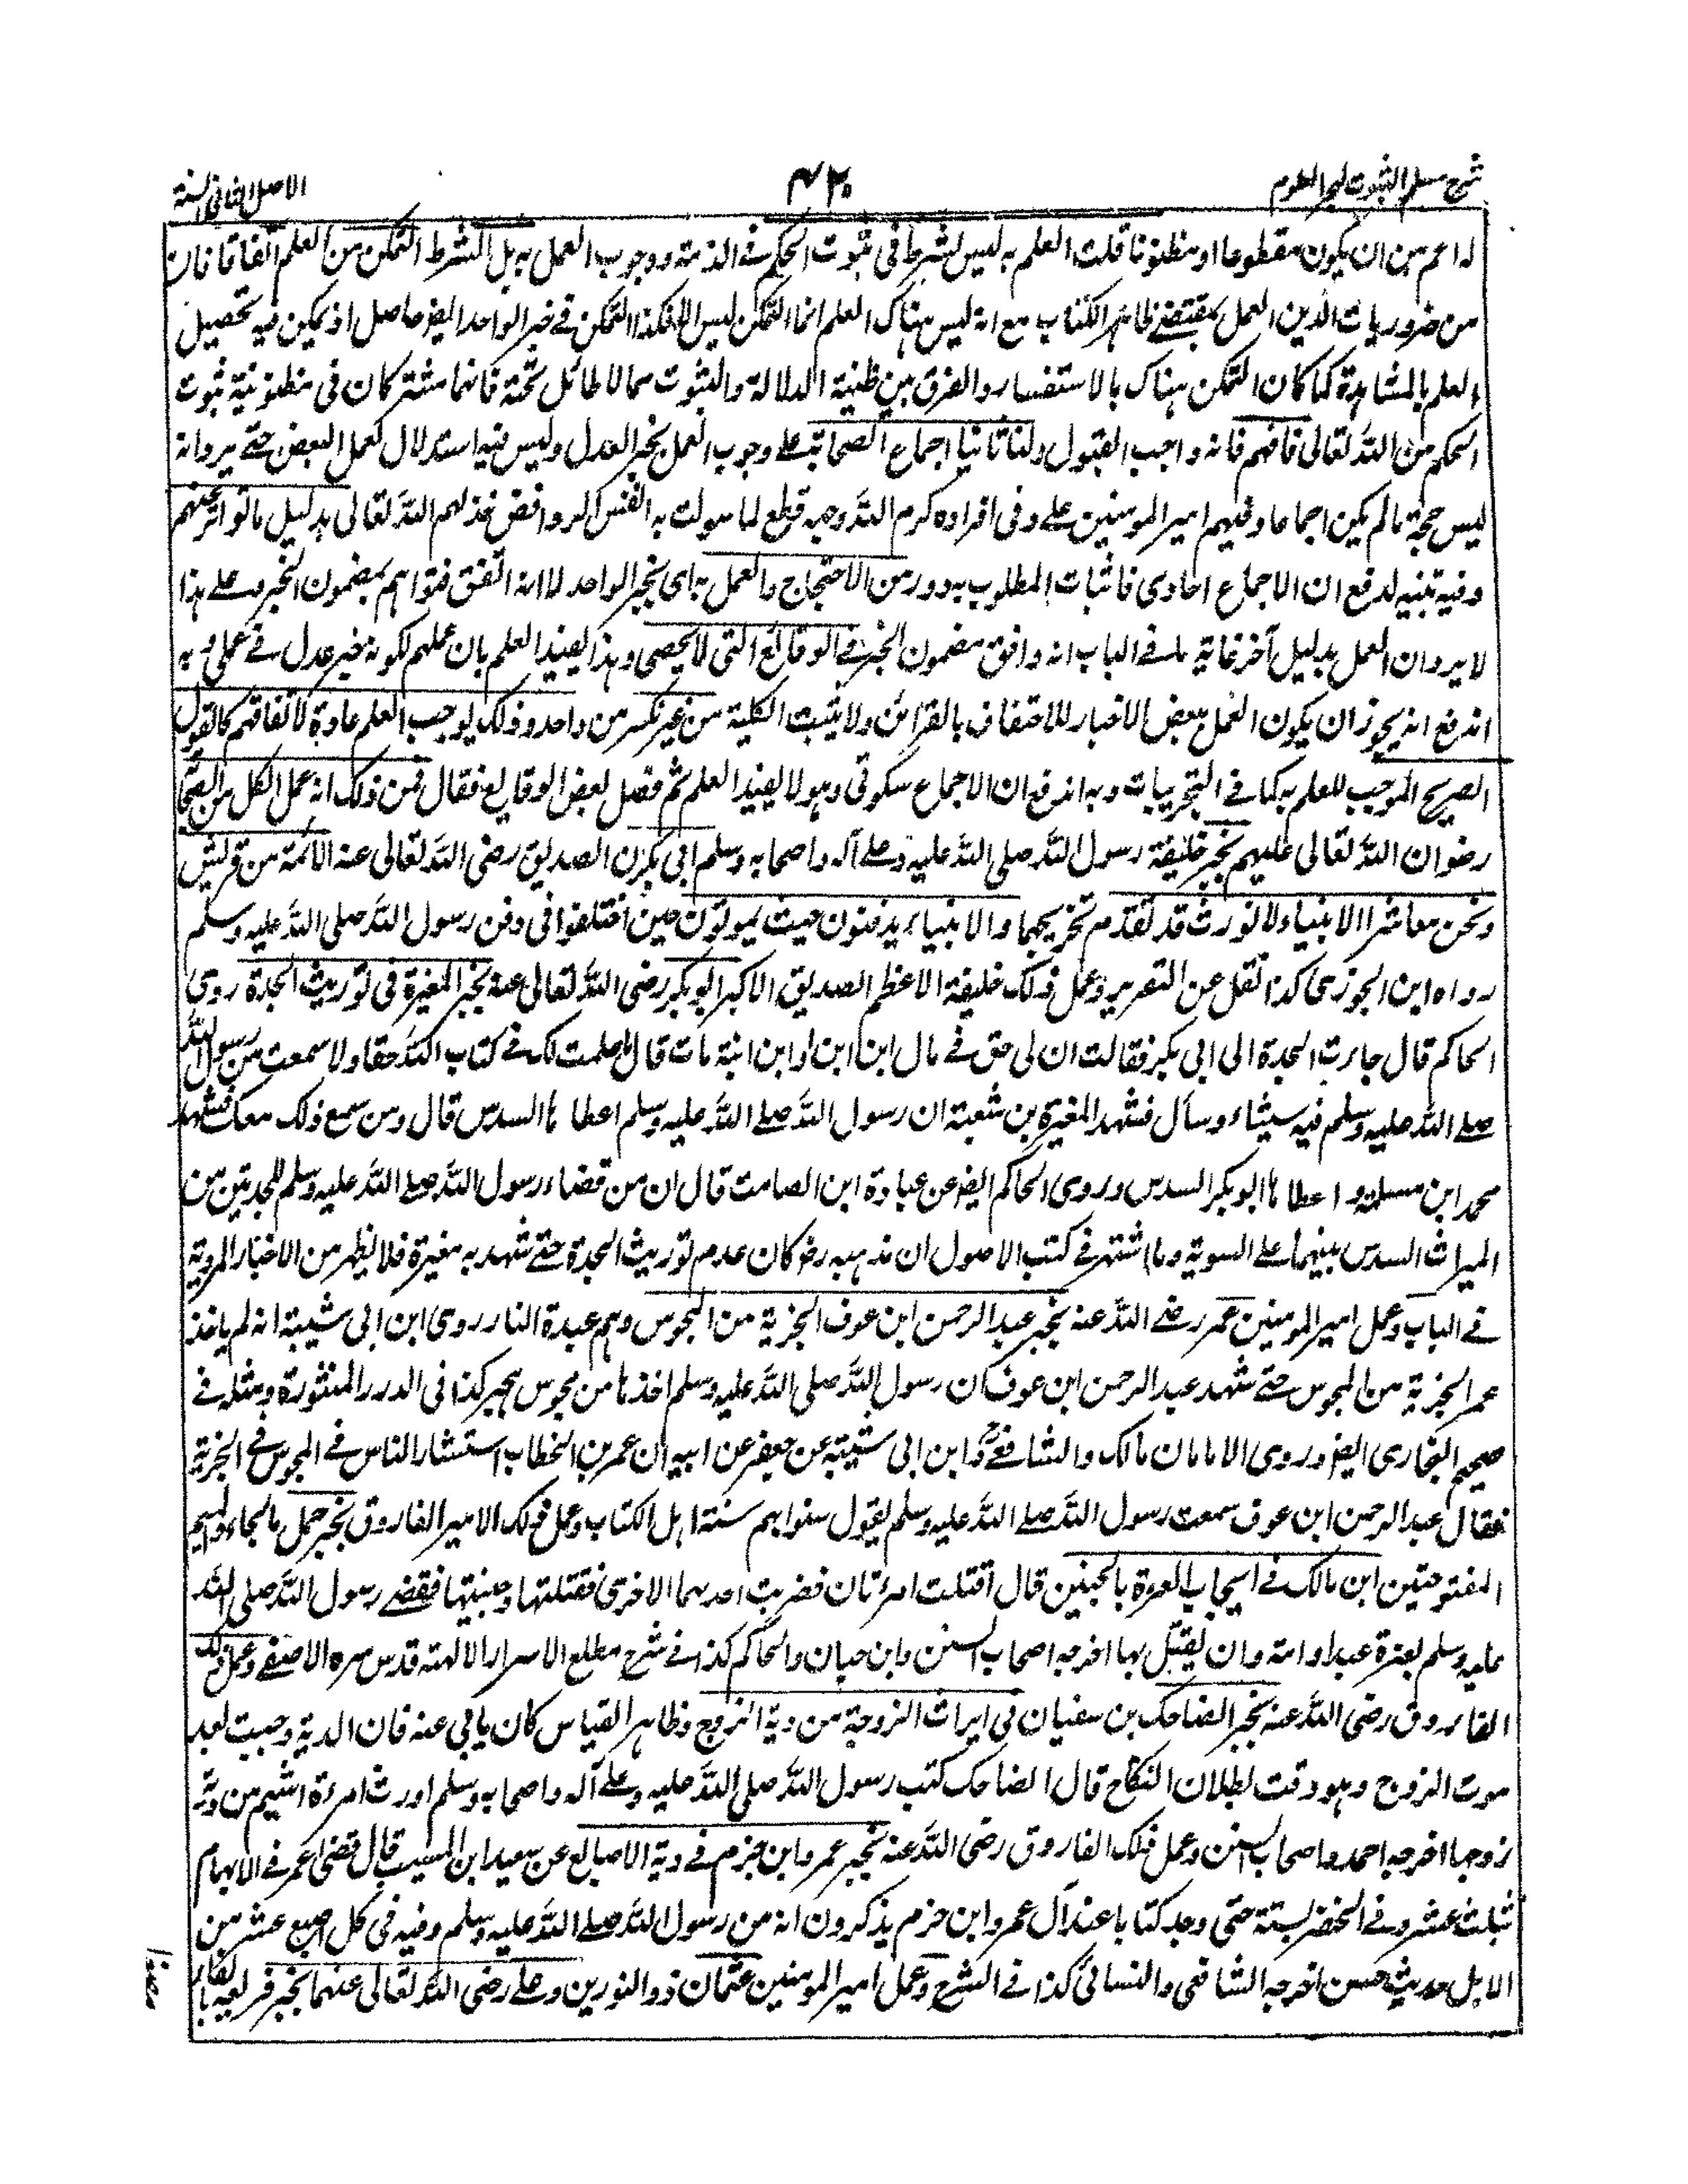 شرح مسلم الثبوت لبحر العلوم
٤٢٠
الاصل الثانى السنة
له اعم من ان يكون مقطوعا او مظنونا قلت العلم به ليس بشرط فى ثبوت الحكم فے الذمة ووجوب العمل به بل الشرط التمكن من العلم اتفاقا فان
من ضروريات الدين العمل بمقتضے ظاہر الكتاب مع انه ليس ہناك العلم انما التمكن ليس الا فكذا التمكن فے خبر الواحد ايضا حاصل اذ يمكن فيه تحصيل
العلم بالمشاہدة كما كان التمكن ہناك بالاستفسار والفرق بين ظنية الدلالة والثبوت مما لا طائل تحته فانهما مشتركان فى مظنونية ثبوت
الحكم من اللّٰه تعالى فافهم فانه واجب القبول ولنا ثانيا اجماع الصحابة علے وجوب العمل بخبر العدل وليس فيه استدلال بعمل البعض حتے يرد انه
ليس حجة ما لم يكن اجماعا وفيهم امير المومنين علے وفى افراده كرم اللّٰه وجهه قطع لما سولت به انفس الروافض خذلهم اللّٰه تعالى بدليل ما تواتر عنهم
وفيه تنبيه لدفع ان الاجماع احادى فاثبات المطلوب به دور من الاحتجاج والعمل به اى بخبر الواحد لا انه اتفق فتواہم بمضمون الخبر وعلے ہذا
لا يرد ان العمل بدليل آخر غاية ما فے الباب انه وافق مضمون الخبر فے الوقائع التى لا تحصى وہذا يفيد العلم بان عملهم لكونه خبر عدل فے عملى وبه
اندفع انه يجوز ان يكون العمل ببعض الاخبار للاحتفاف بالقرائن ولا يثبت الكلية من غير نكير من واحد وذلك يوجب العلم عادة لاتفاقهم كالقول
الصريح الموجب للعلم به كما فے التجربيات وبه اندفع ان الاجماع سكوتى وہو لا يفيد العلم ثم فصل بعض الوقايع فقال فمن ذلك انه عمل الكل من الصحابة
رضوان اللّٰه تعالى عليهم بخبر خليفة رسول اللّٰه صلى اللّٰه عليه وعلے آله واصحابه وسلم ابى بكرن الصديق رضى اللّٰه تعالى عنه الائمة من قريش
ونحن معاشر الانبياء لا نورث قد تقدم تخريجهما والانبياء يدفنون حيث يموتون حين اختلفوا فى دفن رسول اللّٰه صلى اللّٰه عليه وسلم
رواه ابن الجوزى كذا نقل عن التقرير وعمل ذلك خليفة الاعظم الصديق الاكبر ابو بكر رضى اللّٰه تعالى عنه بخبر المغيرة فى توريث الجدة روى
الحاكم قال جاءت الجدة الى ابى بكر فقالت ان لى حق فے مال ابن ابن او ابن ابنة مات قال ما علمت لك فے كتاب اللّٰه حقا ولا سمعت من رسول اللّٰه
صلے اللّٰه عليه وسلم فيه شيئا وسأل فشهد المغيرة بن شعبة ان رسول اللّٰه صلے اللّٰه عليه وسلم اعطاہا السدس قال ومن سمع ذلك معك فشهد
محمد ابن مسلمة واعطاہا ابو بكر السدس وروى الحاكم ايضا عن عبادة ابن الصامت قال ان من قضاء رسول اللّٰه صلے اللّٰه عليه وسلم للجدتين من
الميراث السدس بينهما علے السوية وما اشتهر فے كتب الاصول ان مذہبه رضـ كان عدم توريث الجدة حتے شهد به مغيرة فلا يظهر من الاخبار المروية
فے الباب وعمل امير المومنين عمر رضے اللّٰه عنه بخبر عبد الرحمن ابن عوف الجزية من المجوس وہم عبدة النار روى ابن ابى شيبة انه لم ياخذ
عمر الجزية من المجوس حتے شهد عبد الرحمن ابن عوف ان رسول اللّٰه صلى اللّٰه عليه وسلم اخذہا من مجوس ہجر كذا فى الدرر المنثورة ومثله فے
صحيح البخارى ايضا وروى الامامان مالك والشافعے وابن ابى شيبة عن جعفر عن ابيه ان عمر بن الخطاب استشار الناس فے المجوس فے الجزية
فقال عبد الرحمن ابن عوف سمعت رسول اللّٰه صلے اللّٰه عليه وسلم يقول سنوا بهم سنة اہل الكتاب وعمل ذلك الامير الفاروق بخبر حمل بالحاء والميم
المفتوحتين ابن مالك فے ايجاب الغرة بالجنين قال اقتتلت امرءتان فضربت احدىہما الاخرى فقتلتها وجنينها فقضے رسول اللّٰه صلى اللّٰه
عليه وسلم بغرة عبد او امة وان يقتل بها اخرجه اصحاب السنن وابن حبان والحاكم كذا فے شرح مطلع الاسرار الالهية قدس سره الاصفے وعمل ذلك
الفاروق رضى اللّٰه عنه بخبر الضاحك بن سفيان فى ايراث الزوجة من دية الزوج وظاہر القياس كان يابى عنه فان الدية وجبت بعد
موت الزوج وہو وقت بطلان النكاح قال الضاحك كتب رسول اللّٰه صلى اللّٰه عليه وعلے آله واصحابه وسلم اورث امرءة اشيم من دية
زوجها اخرجه احمد واصحاب السنن وعمل ذلك الفاروق رضى اللّٰه عنه بخبر عمرو ابن حزم فے دية الاصابع عن سعيد ابن المسيب قال قضى عمر فے الابهام
بثلث عشر وفے الخنصر بستة حتى وجد كتابا عند آل عمرو ابن حزم يذكرون انه من رسول اللّٰه صلے اللّٰه عليه وسلم وفيه فى كل اصبع عشر من
الابل حديث حسن اخرجه الشافعى والنسائى كذا فے الشرح وعمل امير المومنين عثمان ذو النورين وعلے رضى اللّٰه تعالى عنهما بخبر فريعة